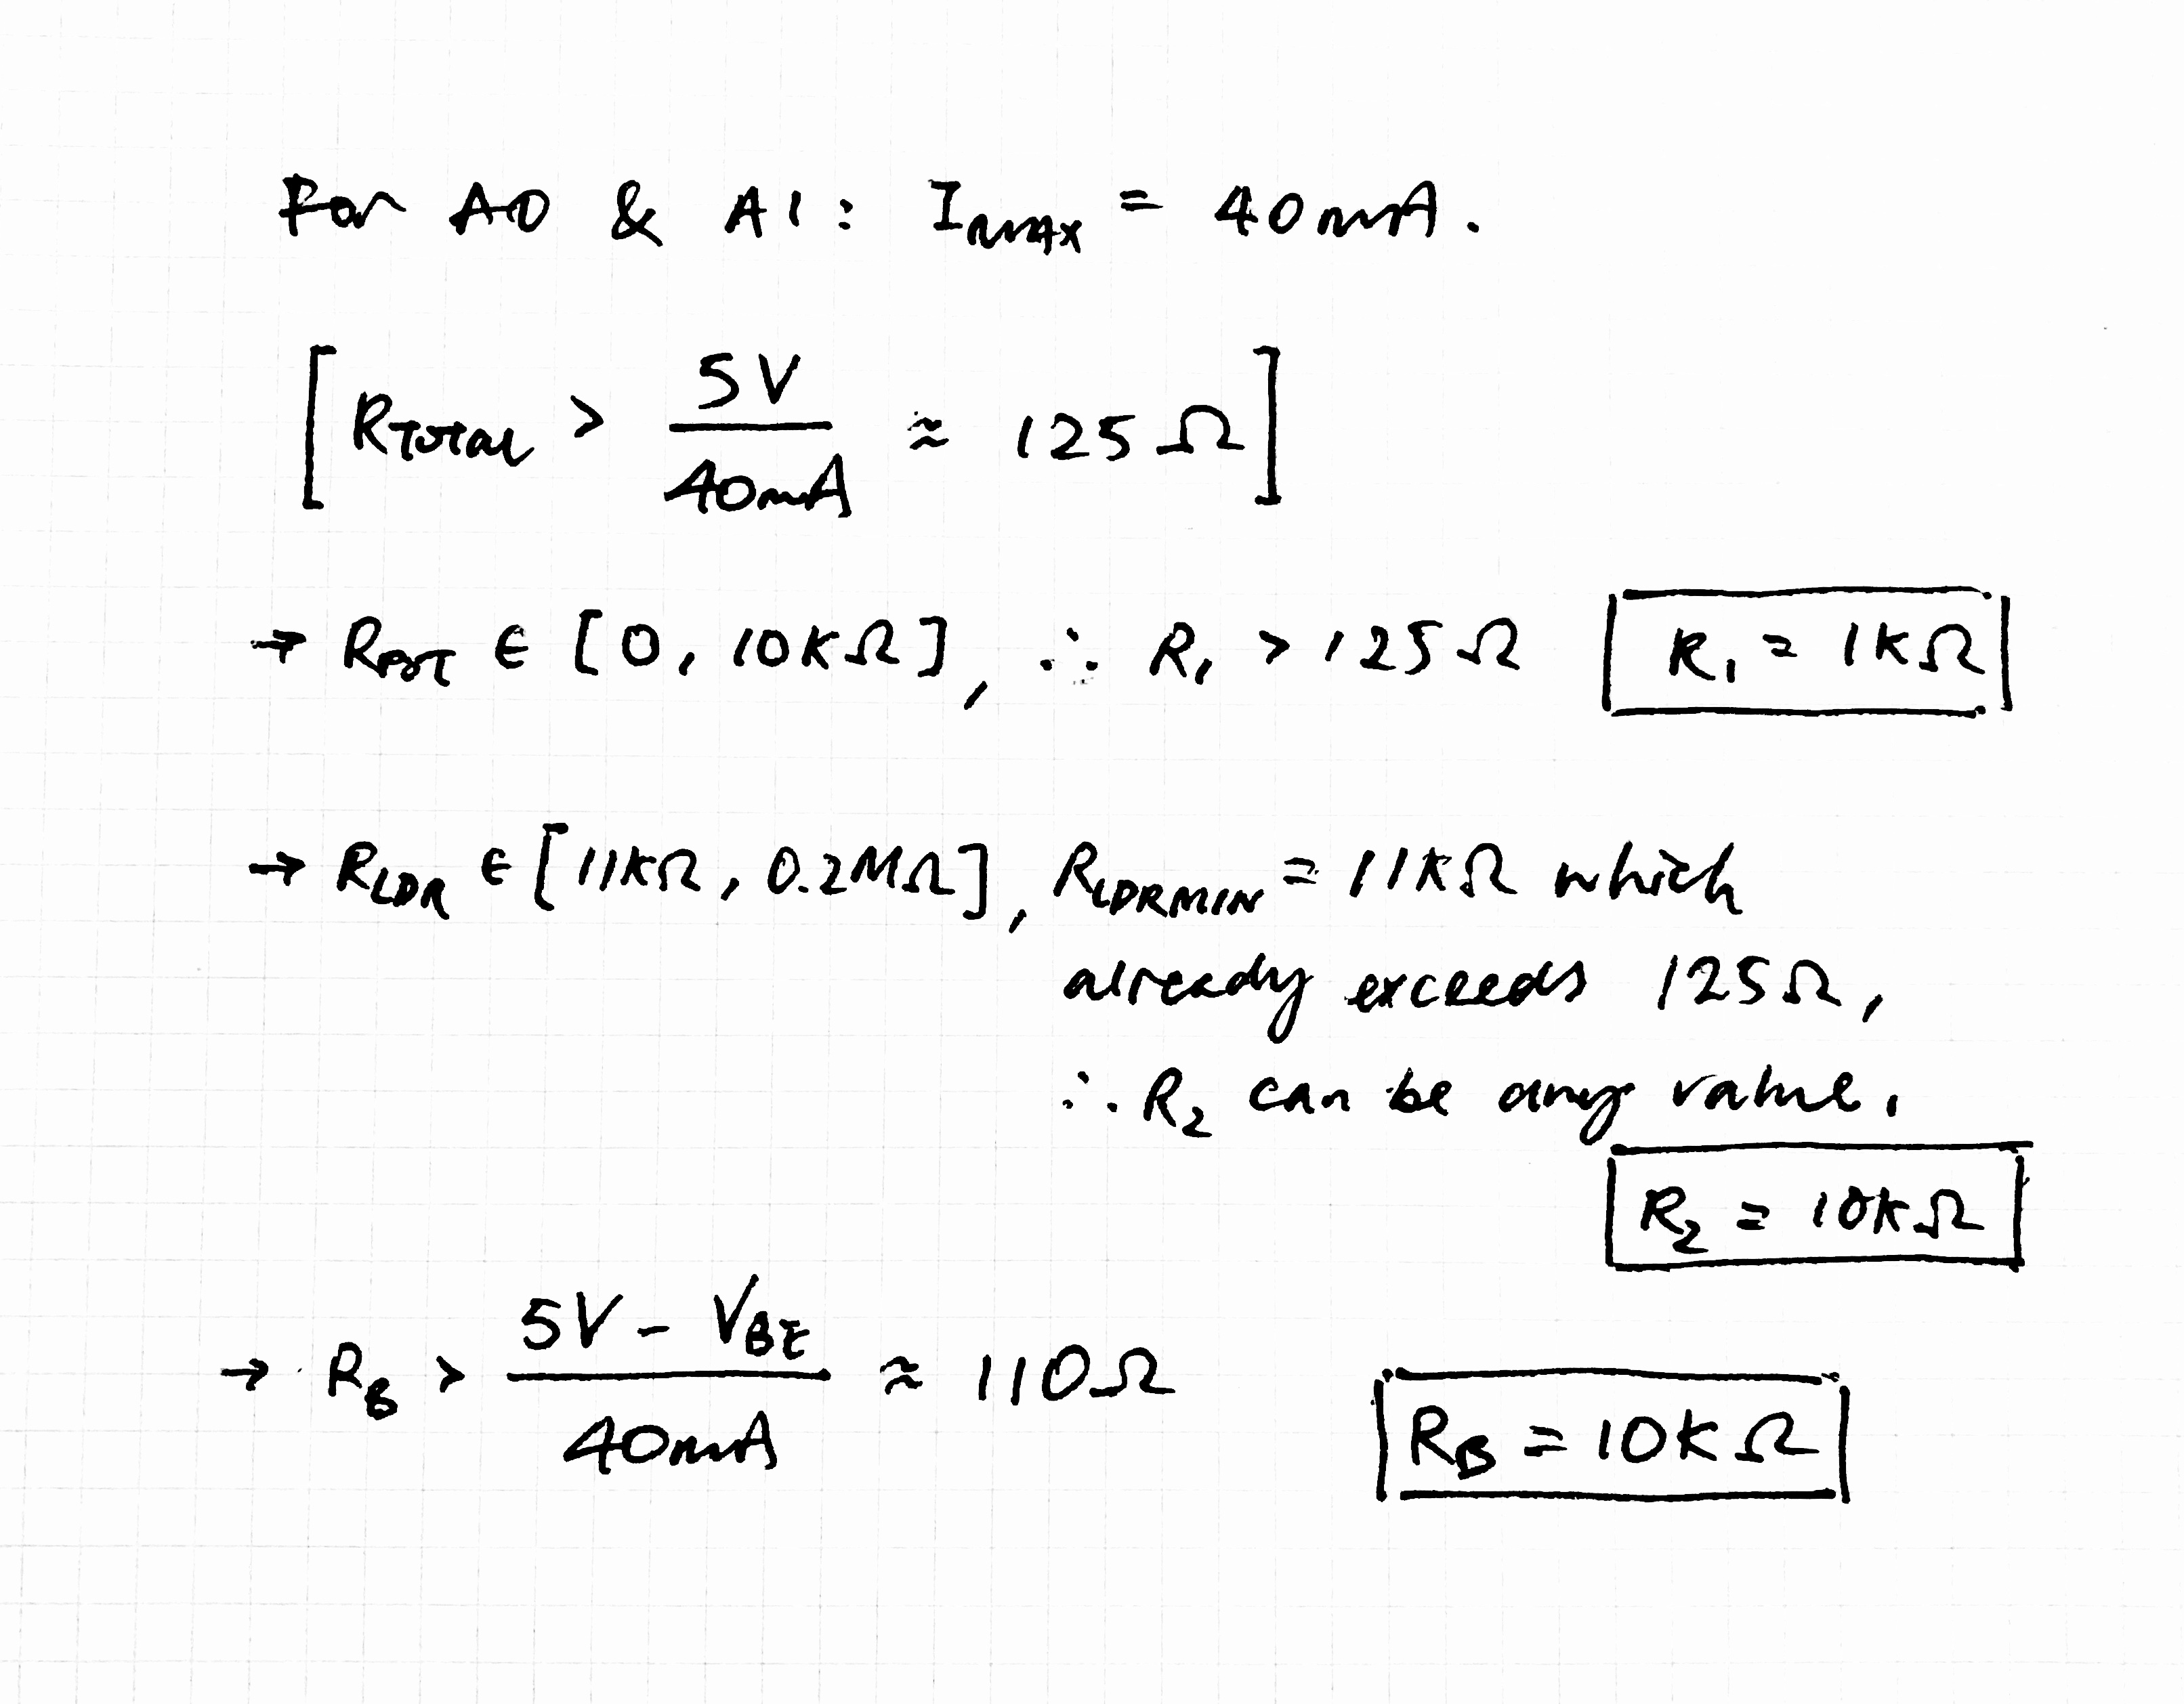 For A0 & A1: I_MAX = 40mA.
[R_TOTAL > 5V / 40mA ≈ 125Ω]
→ R_POT ∈ [0, 10kΩ], ∴ R₁ > 125Ω R₁ = 1kΩ
→ R_LDR ∈ [11kΩ, 0.2MΩ], R_LDRMIN = 11kΩ which
already exceeds 125Ω,
∴ R₂ can be any value.
R₂ = 10kΩ
→ R_B > 5V - V_BE / 40mA ≈ 110Ω R_B = 10kΩ